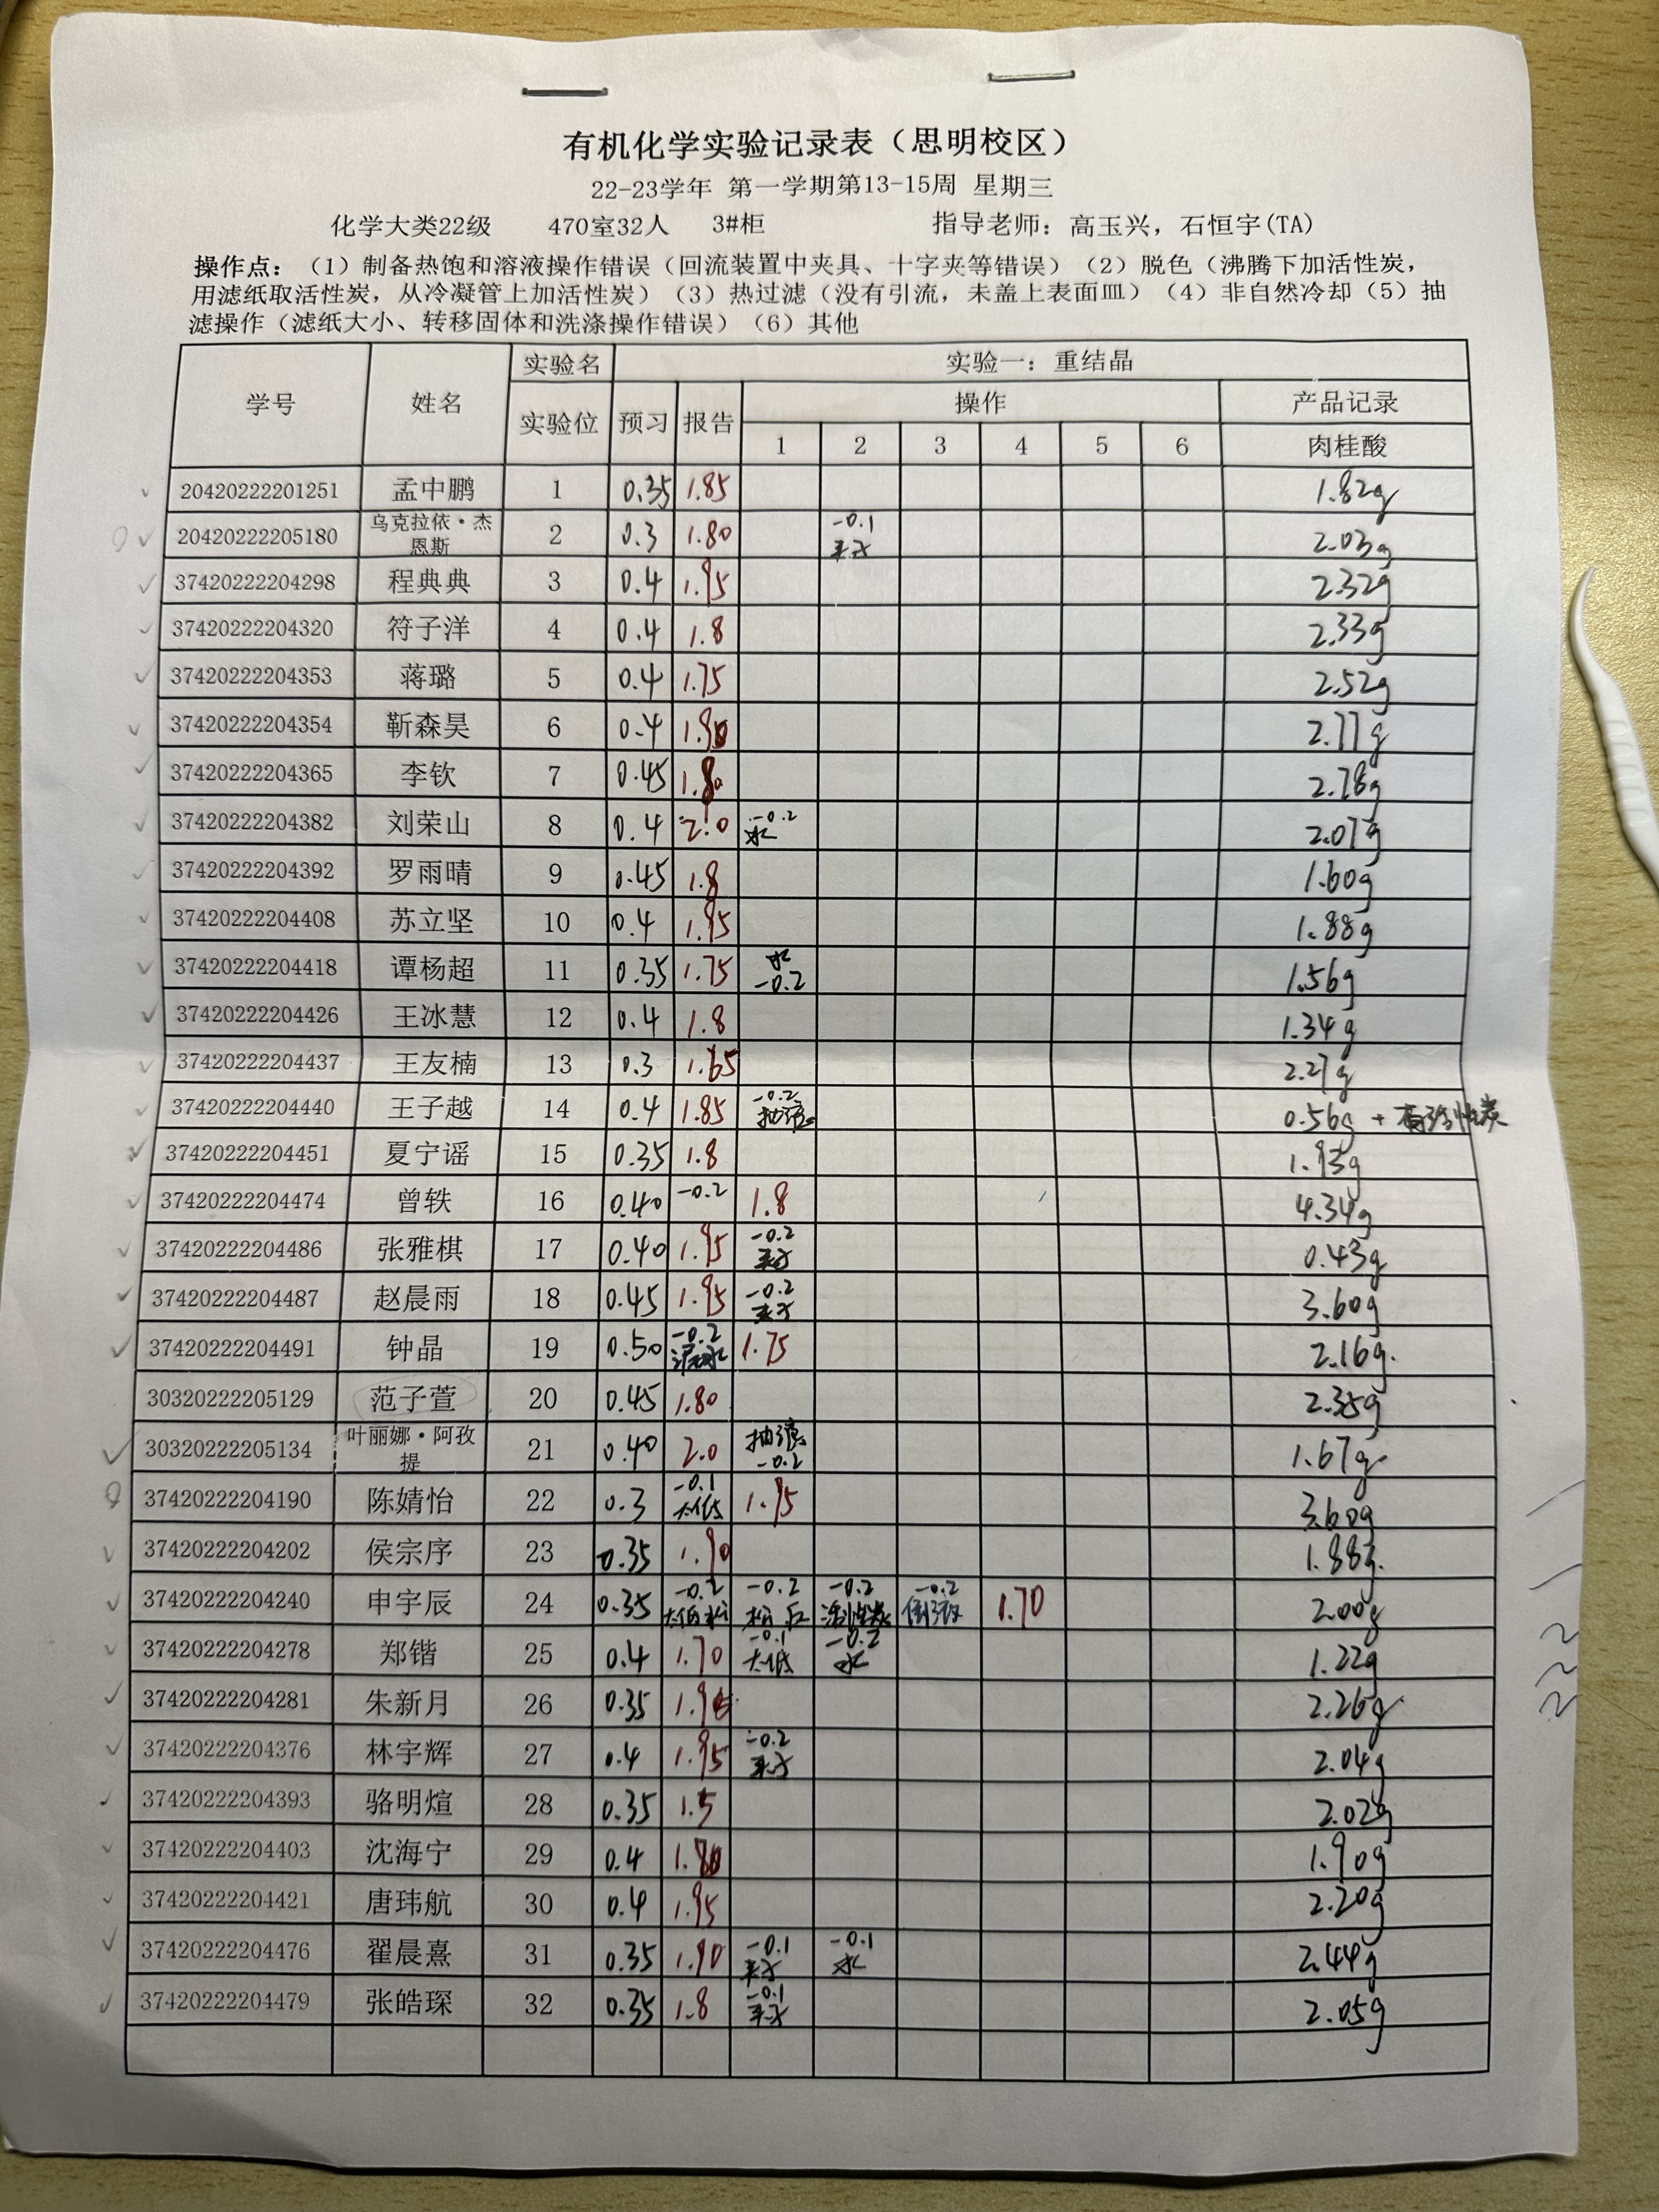 有机化学实验记录表（思明校区）
22-23学年 第一学期第13-15周 星期三
化学大类22级 470室32人 3#柜 指导老师：高玉兴，石恒宇(TA)
操作点：（1）制备热饱和溶液操作错误（回流装置中夹具、十字夹等错误）（2）脱色（沸腾下加活性炭，
用滤纸取活性炭，从冷凝管上加活性炭）（3）热过滤（没有引流，未盖上表面皿）（4）非自然冷却（5）抽
滤操作（滤纸大小、转移固体和洗涤操作错误）（6）其他
学号 姓名 实验名 实验一：重结晶
实验位 预习 报告 操作 产品记录
1 2 3 4 5 6 肉桂酸
20420222201251 孟中鹏 1 0.35 1.85 1.82g
20420222205180 乌克拉依·杰恩斯 2 0.3 1.80 -0.1 2.03g
37420222204298 程典典 3 0.4 1.95 2.32g
37420222204320 符子洋 4 0.4 1.8 2.33g
37420222204353 蒋璐 5 0.4 1.75 2.52g
37420222204354 靳森昊 6 0.4 2.77g
37420222204365 李钦 7 0.45 1.80 2.78g
37420222204382 刘荣山 8 0.4 2.0 -0.2 水 2.07g
37420222204392 罗雨晴 9 0.45 1.8 1.60g
37420222204408 苏立坚 10 0.4 1.95 1.88g
37420222204418 谭杨超 11 0.35 1.75 水 -0.2 1.56g
37420222204426 王冰慧 12 0.4 1.8 1.34g
37420222204437 王友楠 13 0.3 1.65 2.27g
37420222204440 王子越 14 0.4 1.85 -0.2 抽滤 0.56g + 有活性炭
37420222204451 夏宁谣 15 0.35 1.8 1.93g
37420222204474 曾轶 16 0.40 -0.2 1.8 4.34g
37420222204486 张雅棋 17 0.40 1.95 -0.2 0.43g
37420222204487 赵晨雨 18 0.45 1.95 -0.2 3.60g
37420222204491 钟晶 19 0.50 -0.2 1.75 2.16g.
30320222205129 范子萱 20 0.45 1.80 2.35g
30320222205134 叶丽娜·阿孜提 21 0.40 2.0 抽滤 -0.2 1.67g
37420222204190 陈婧怡 22 0.3 -0.1 太低 1.95 3.60g
37420222204202 侯宗序 23 0.35 1.90 1.88g.
37420222204240 申宇辰 24 0.35 -0.2 -0.2 -0.2 活性炭 -0.2 1.70 2.00g
37420222204278 郑锴 25 0.4 1.70 -0.1 太低 -0.2 水 1.22g
37420222204281 朱新月 26 0.35 2.26g
37420222204376 林宇辉 27 0.4 1.95 -0.2 2.04g
37420222204393 骆明煊 28 0.35 1.5 2.02g
37420222204403 沈海宁 29 0.4 1.90g
37420222204421 唐玮航 30 0.4 1.95 2.20g
37420222204476 翟晨熹 31 0.35 1.90 -0.1 -0.1 水 2.44g
37420222204479 张皓琛 32 0.35 1.8 -0.1 2.05g